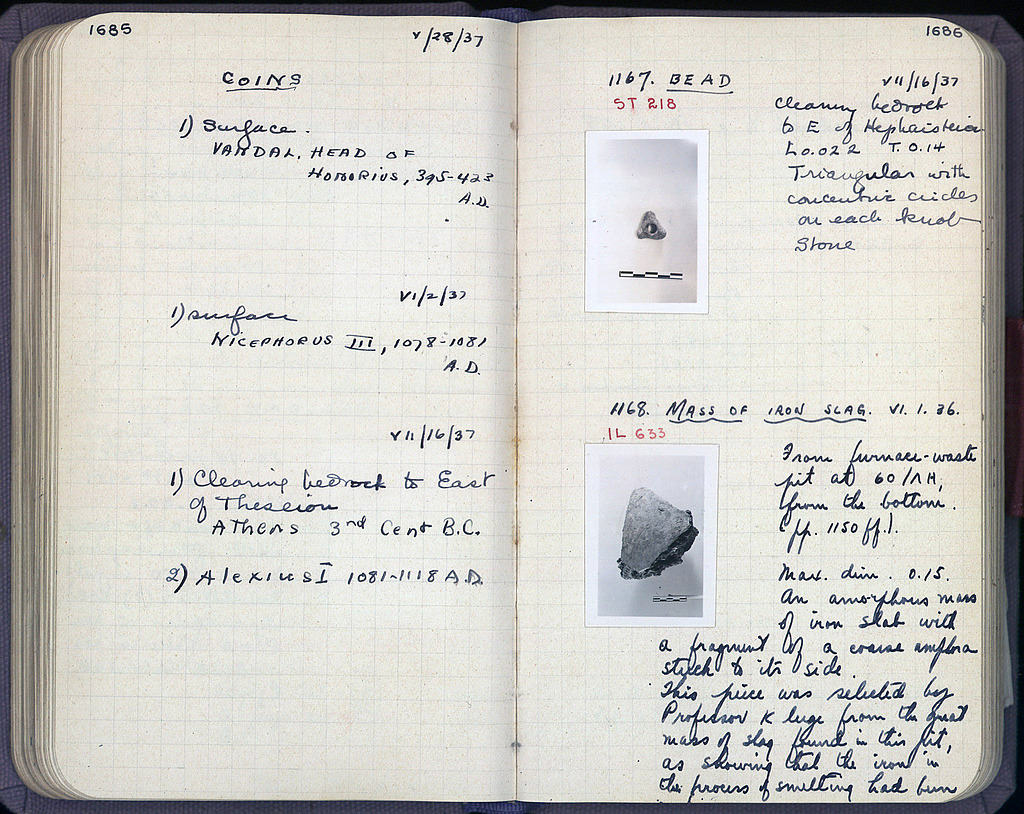 1685
V/28/37
COINS
1) Surface.
VANDAL, HEAD OF
HONORIUS, 395-423
A.D.
VI/2/37
1) surface
NICEPHORUS III, 1078-1081
A.D.
VII/16/37
1) Clearing bedrock to East
of Theseion
ATHENS 3rd Cent B.C.
2) Alexius I 1081-1118 A.D.
1686
1167. BEAD
VII/16/37
ST 218
Cleaning bedrock
to E of Hephaisteion
L 0.022 T. 0.14
Triangular with
concentric circles
on each knob
Stone
1168. MASS OF IRON SLAG. VI. 1. 36.
IL 633
From furnace-waste
pit at 60/ΛΗ,
from the bottom.
(pp. 1150 ff.).
Max. dim. 0.15.
An amorphous mass
of iron slab with
a fragment of a coarse amphora
stuck to its side.
This piece was selected by
Professor Kluge from the great
mass of slag found in this pit,
as showing that the iron in
the process of smelting had been